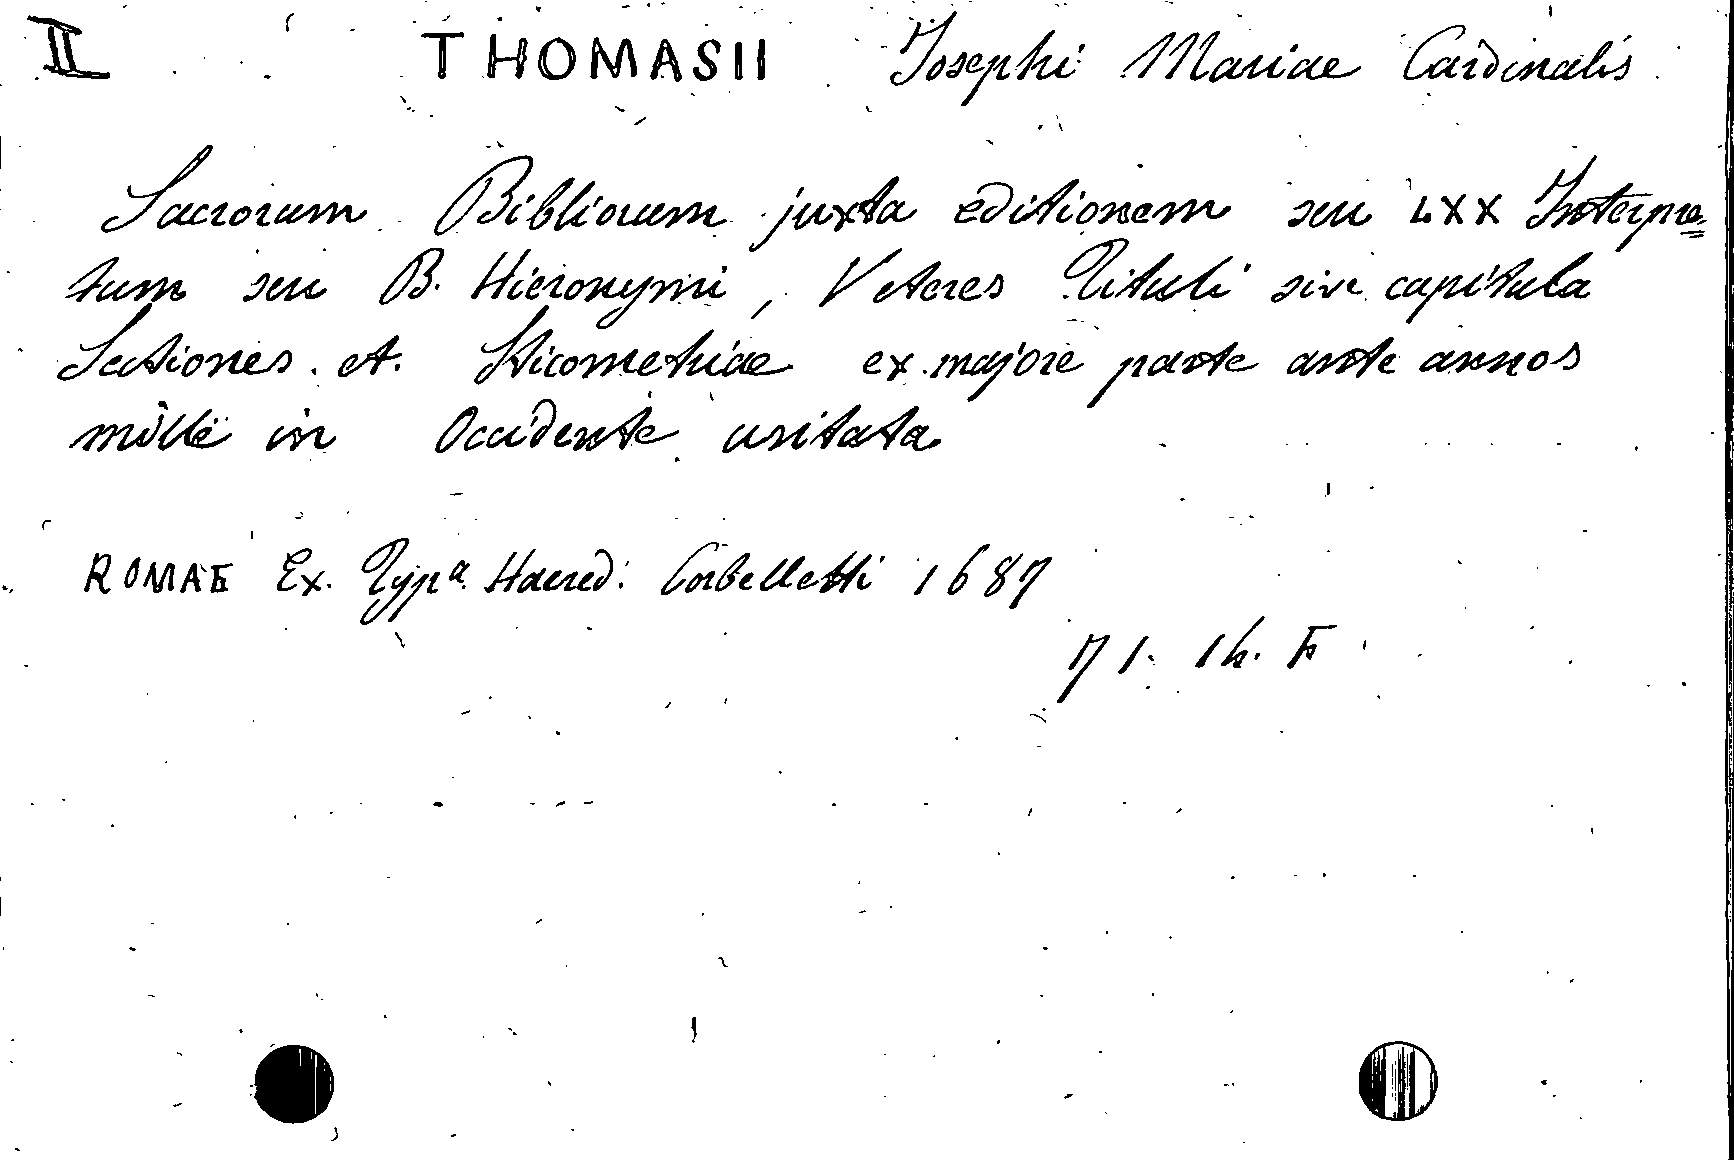 II THOMASII Josephi Mariae Cardinalis
Sacrorum Bibliorum juxta editionem seu LXX Interpre=
tum seu B. Hieronymi, Veteres Tituli sive capitula
Sectiones et Sticometriae ex majore parte ante annos
mille in Occidente usitata
ROMAE Ex. Typᵃ Haered: Corbelletti 1687
71. 1h. F